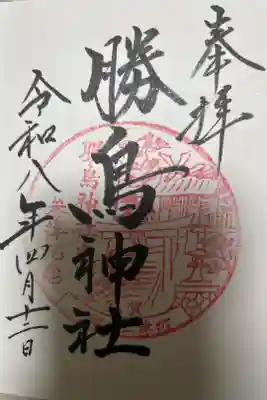 奉拝
勝鳥神社
令和八年四月十二日